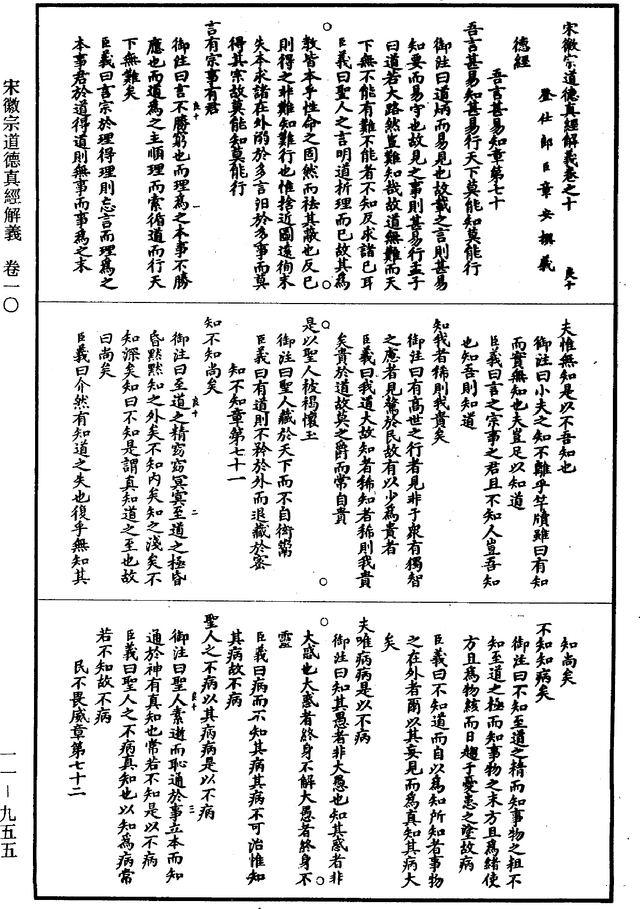 宋徽宗道德真經解義卷之十 良十
登仕郎臣章安撰義
德經
吾言甚易知章第七十
吾言甚易知甚易行天下莫能知莫能行
御注曰道炳而易見也故載之言則甚易
知要而易守也故見之事則甚易行孟子
曰道若大路然豈難知哉故道無難而天
下無不能有難不能者不知反求諸己耳
臣義曰聖人之言明道析理而已故其為
教皆本乎性命之固然而祛其蔽也反已
則得之非難知難行也惟捨近圖遠徇末
失本求諸在外溺於多言汩於多事而莫
得其宗故莫能知莫能行
言有宗事有君
御注曰言不勝窮也而理為之本事不勝
應也而道為之主順理而索循道而行天
下無難矣
臣義曰言宗於理得理則忘言而理為之
本事君於道得道則無事而事為之末
夫惟無知是以不吾知也
御注曰小夫之知不離乎竿牘雖曰有知
而實無知也夫豈足以知道
臣義曰言之宗事之君且不知人豈吾知
也知吾則知道
知我者稀則我貴矣
御注曰有高世之行者見非于衆有獨智
之慮者見驁於民故有以少為貴者
臣義曰我道大故知者稀知者稀則我貴
矣貴於道故莫之爵而常自貴
是以聖人被褐懷玉
御注曰聖人藏於天下而不自衒鬻
臣義曰有道則不矜於外而退藏於密
知不知章第七十一
知不知尚矣
御注曰至道之精窈窈冥冥至道之極昏
昏默默知之外矣不知內矣知之淺矣不
知深矣知曰不知是謂真知道之至也故
曰尚矣
臣義曰介然有知道之失也復乎無知其
知尚矣
不知知病矣
御注曰不知至道之精而知事物之粗不
知至道之極而知事物之末方且為緒使
方且為物絯而日趨于憂患之塗故病
臣義曰不知道而自以為知所知者事物
之在外者爾以其妄見而為真知其病大
矣
夫唯病病是以不病
御注曰知其愚者非大愚也知其惑者非
大惑也大惑者終身不解大愚者終身不
靈
臣義曰病而不知其病其病不可治惟知
其病故不病
聖人之不病以其病病是以不病
御注曰聖人素逝而恥通於事立本而知
通於神有真知也常若不知是以不病
臣義曰聖人之不病真知也以知為病常
若不知故不病
民不畏威章第七十二
宋徽宗道德真經解義 卷一〇
一一－九五五